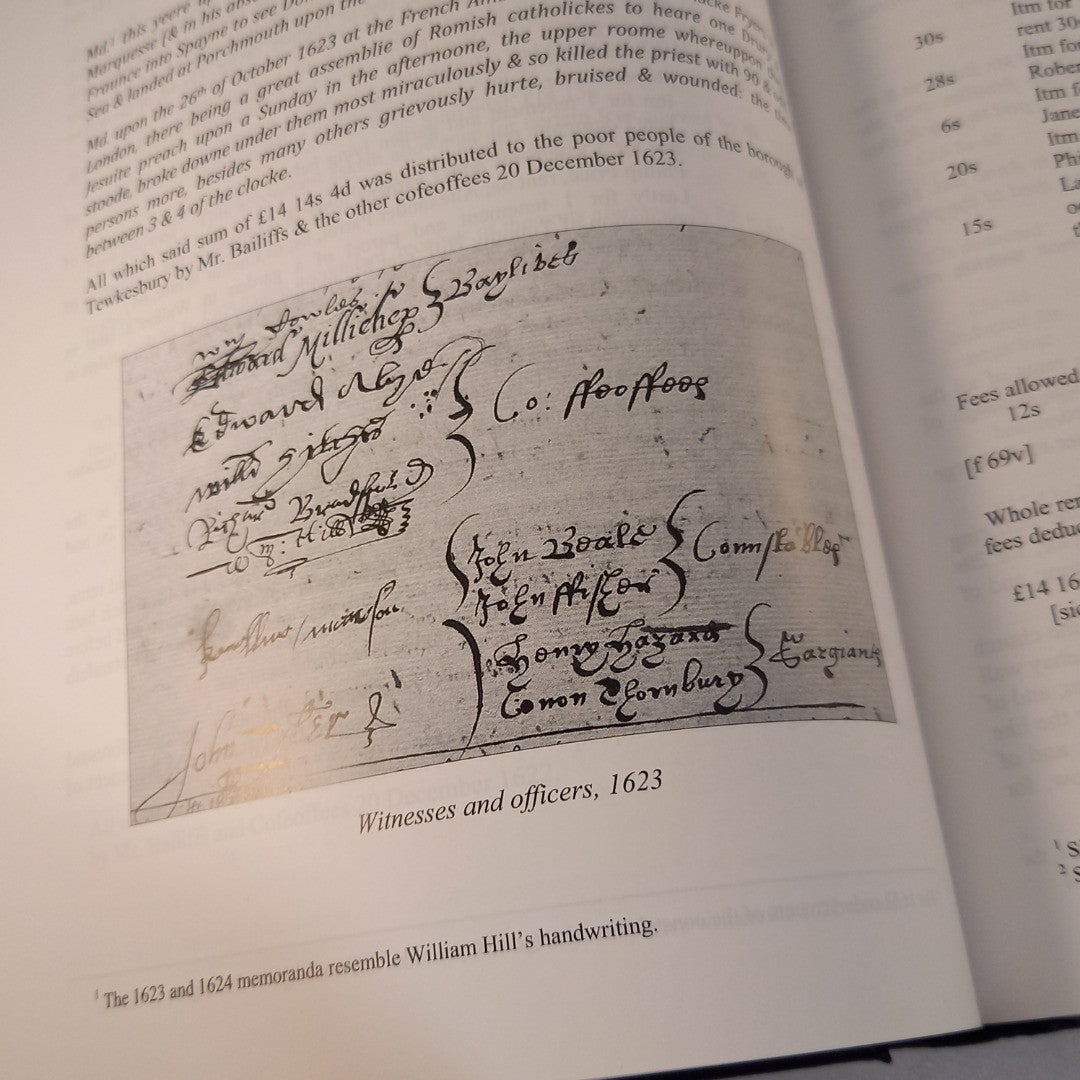 Md.¹ this yeere
Marquesse (& in his
Fraunce into Spayne to see
Sea & landed at Porchmouth upon the
Md. upon the 26th of October 1623 at the French
London, there being a great assemblie of Romish catholickes to heare one
Jesuite preach upon a Sunday in the afternoone, the upper roome whereuppon
stoode, broke downe under them most miraculously & so killed the priest with 90
persons more, besides many others grievously hurte, bruised & wounded: the
between 3 & 4 of the clocke.
All which said sum of £14 14s 4d was distributed to the poor people of the
Tewkesbury by Mr. Bailiffs & the other cofeoffees 20 December 1623.
Baylives
Edward Millichep
Edward Alye
Co: ffeoffees
Richard Bradford
Wm: Hill
John Beale
Connstables
John ffisher
Henry Hazard
Sargiants
Conon Thornbury
John
Witnesses and officers, 1623
¹ The 1623 and 1624 memoranda resemble William Hill's handwriting.
Itm for
30s
rent 30
Itm for
28s
Rober
Itm f
6s
Jane
Itm
20s
15s
Fees allowed
12s
[f 69v]
Whole ren
fees dedu
£14 16
[si
¹ S
² S